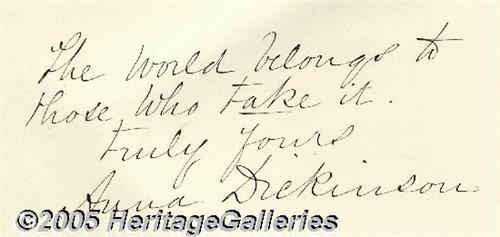 The World belongs to
those who take it.
Truly Yours
Anna Dickinson
©2005 HeritageGalleries